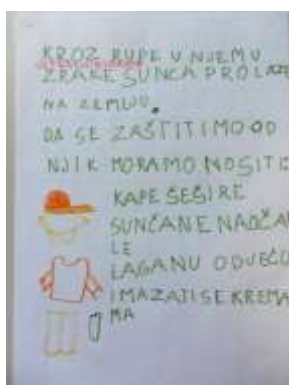 KROZ RUPE U NJEMU
ZRAKE SUNCA PROLAZE
NA ZEMLJU.
DA SE ZAŠTITIMO OD
NJIH MORAMO NOSITI
KAPE ŠEŠIRE
SUNČANE NAOČA
LE
LAGANU ODJEĆU
I MAZATI SE KREMA
MA